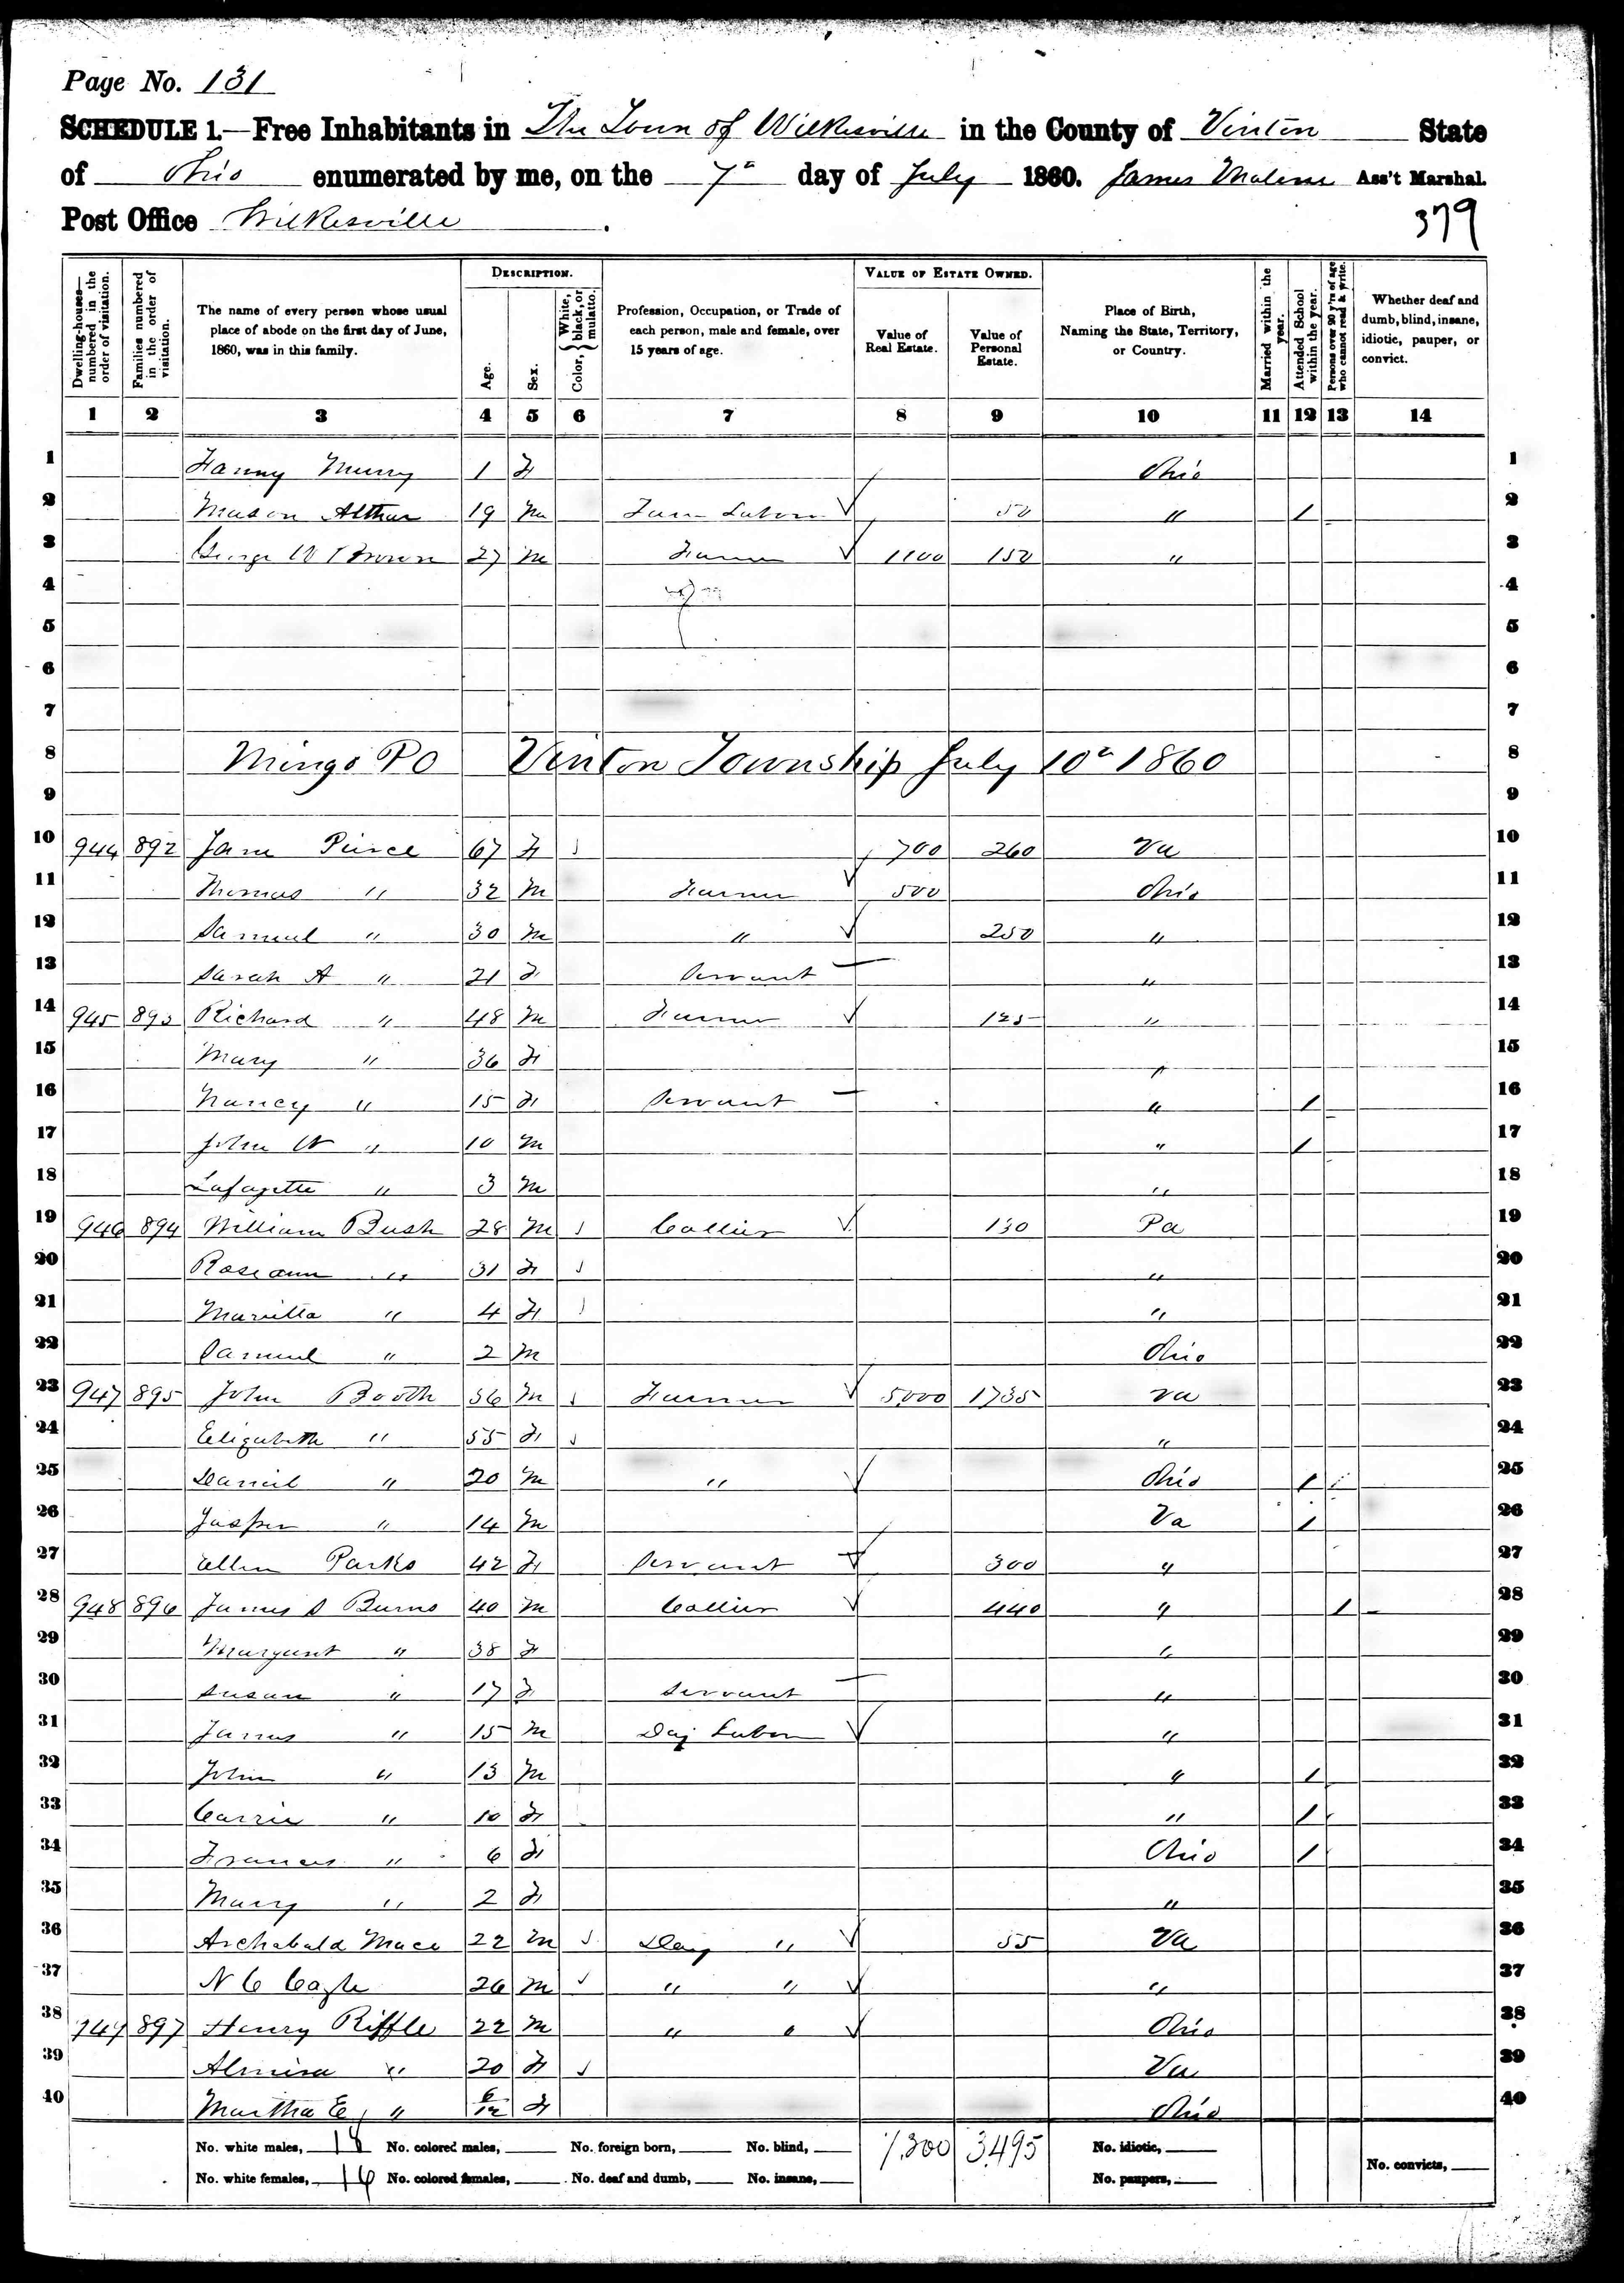 Page No. 131
SCHEDULE 1.—Free Inhabitants in The Town of Wilkesville in the County of Vinton State
of Ohio enumerated by me, on the 7th day of July 1860. James Malone Ass't Marshal.
Post Office Wilkesville.
379
Dwelling-houses—numbered in the order of visitation.
Families numbered in the order of visitation.
The name of every person whose usual place of abode on the first day of June, 1860, was in this family.
DESCRIPTION.
Age.
Sex.
Color, } White, black, or mulatto.
Profession, Occupation, or Trade of each person, male and female, over 15 years of age.
VALUE OF ESTATE OWNED.
Value of Real Estate.
Value of Personal Estate.
Place of Birth, Naming the State, Territory, or Country.
Married within the year.
Attended School within the year.
Persons over 20 y'rs of age who cannot read & write.
Whether deaf and dumb, blind, insane, idiotic, pauper, or convict.
1 2 3 4 5 6 7 8 9 10 11 12 13 14
1 Fanny Murry 1 F Ohio 1
2 Mason Althar 19 M Farm Labor ✓ 50 " / 2
3 George W Brown 27 M Farmer ✓ 1100 150 " 3
4 4
5 5
6 6
7 7
8 Mingo PO Vinton Township July 10th 1860 8
9 9
10 944 892 Jane Pierce 67 F 700 260 Va 10
11 Thomas " 32 M Farmer ✓ 500 Ohio 11
12 Samuel " 30 M " ✓ 250 " 12
13 Sarah A " 21 F Servant — " 13
14 945 893 Richard " 48 M Farmer ✓ 125 " 14
15 Mary " 36 F " 15
16 Nancy " 15 F Servant — " / 16
17 John W " 10 M " / 17
18 Lafayette " 3 M " 18
19 946 894 William Bush 28 M Collier ✓ 130 Pa 19
20 Roseann " 31 F " 20
21 Marietta " 4 F " 21
22 Samuel " 2 M Ohio 22
23 947 895 John Booth 56 M Farmer ✓ 5000 1735 Va 23
24 Elizabeth " 55 F " 24
25 Daniel " 20 M " ✓ Ohio / 25
26 Jasper " 14 M Va / 26
27 Ellen Parks 42 F Servant 300 " 27
28 948 896 James S Burns 40 M Collier ✓ 440 " / 28
29 Margaret " 38 F " 29
30 Susan " 17 F Servant — " 30
31 James " 15 M Day Labor ✓ " 31
32 John " 13 M " / 32
33 Carrie " 10 F " / 33
34 Frances " 6 F Ohio / 34
35 Mary " 2 F " 35
36 Archabald Mace 22 M Day " ✓ 55 Va 36
37 N C Cagle 26 M " " ✓ " 37
38 949 897 Henry Riffle 22 M " " ✓ Ohio 38
39 Almira " 20 F Va 39
40 Martha E " 6/12 F Ohio 40
No. white males, 18 No. colored males, No. foreign born, No. blind, 7,300 3,495 No. idiotic,
No. white females, 16 No. colored females, No. deaf and dumb, No. insane, No. paupers, No. convicts,